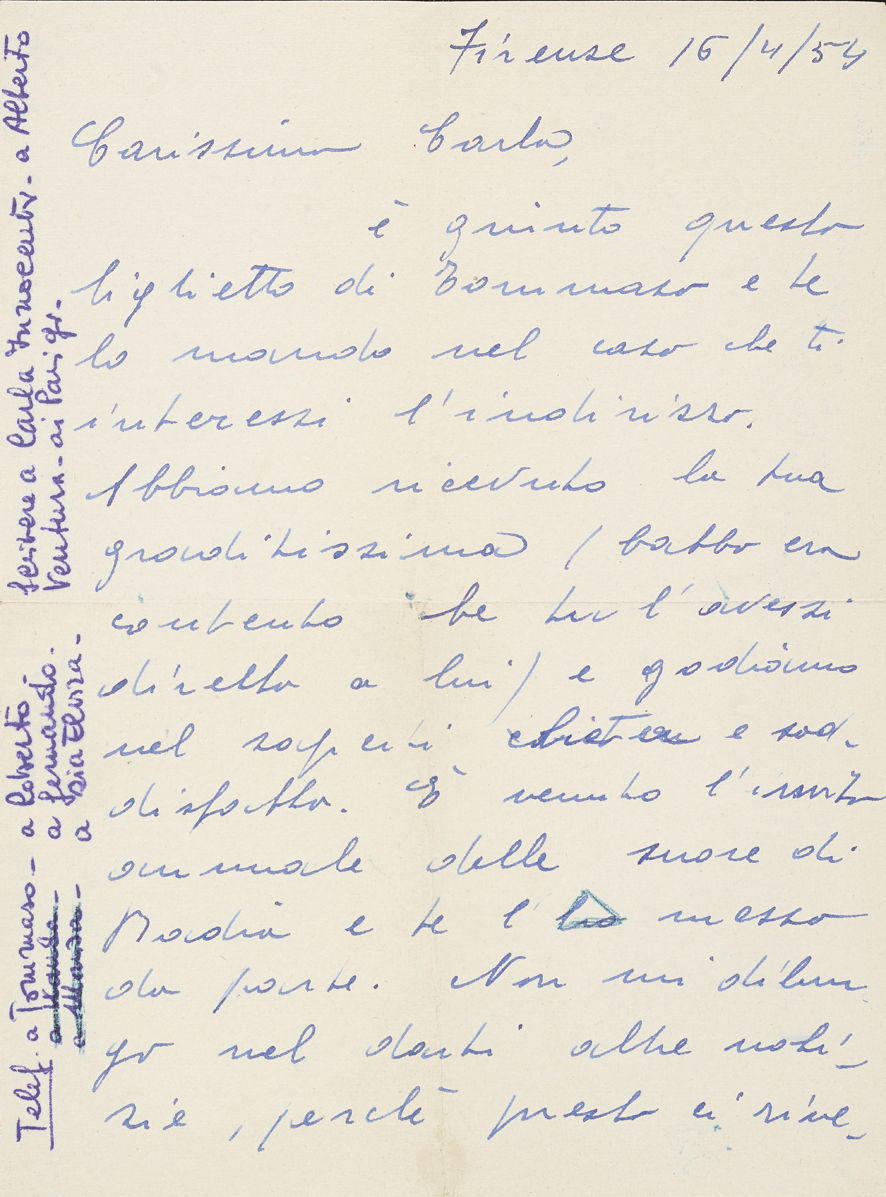 Firenze 16/4/54
Carissimo Carlo,
è giunto questo
biglietto di Tommaso e te
lo mando nel caso che ti
interessi l'indirizzo.
Abbiamo ricevuto la tua
graditissima (babbo era
contento che tu l'avessi
diretta a lui) e godiamo
nel saperti e sod-
disfatto. È venuto l'invito
annuale delle suore di
Badia e te l'ho messo
da parte. Non mi dilun
go nel darti altre noti-
zie, perchè presto ci rive-
Telef. a Tommaso - a Roberto -
a Wanda - a Fernando -
a - a zia Elvira -
Scrivere a Carla Innocenti - a Alberto
Ventura - ai Parigi -